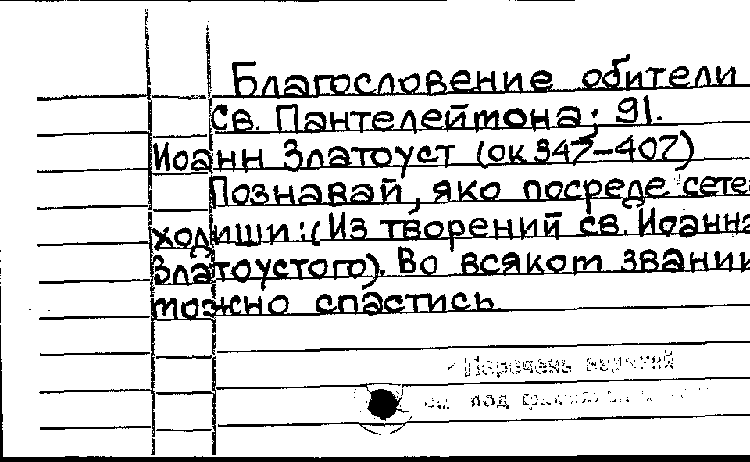 Благословение обители
Св. Пантелеймона; 91.
Иоанн Златоуст (ок 347-407)
Познавай, яко посреде сете
ходиши: (Из творений св. Иоанна
Златоустого). Во всяком звании
можно спастись
Перечень
под